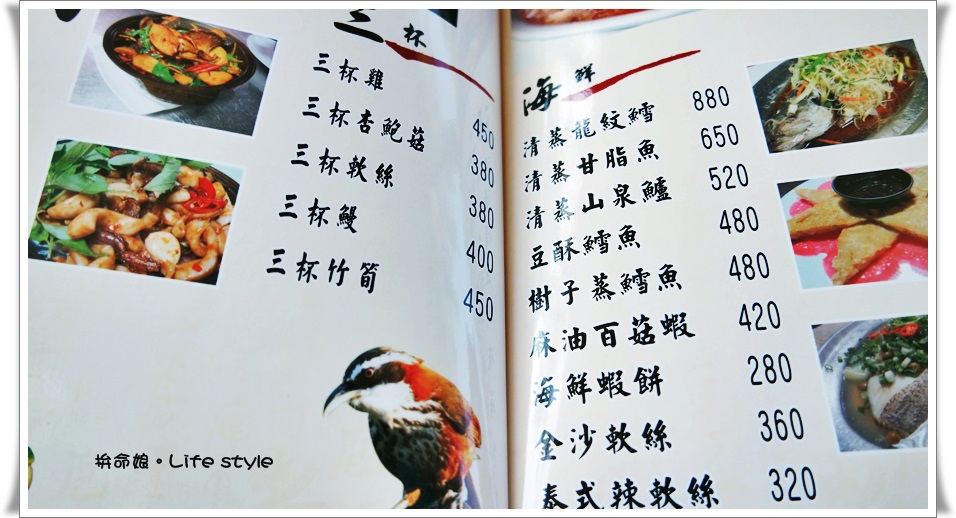 三杯
三杯雞 450
三杯杏鮑菇 380
三杯軟絲 380
三杯鰻 400
三杯竹筍 450
海鮮
清蒸龍紋鱈 880
清蒸甘脂魚 650
清蒸山泉鱸 520
豆酥鱈魚 480
樹子蒸鱈魚 480
麻油百菇蝦 420
海鮮蝦餅 280
金沙軟絲 360
泰式辣軟絲 320
拚命娘。Life style